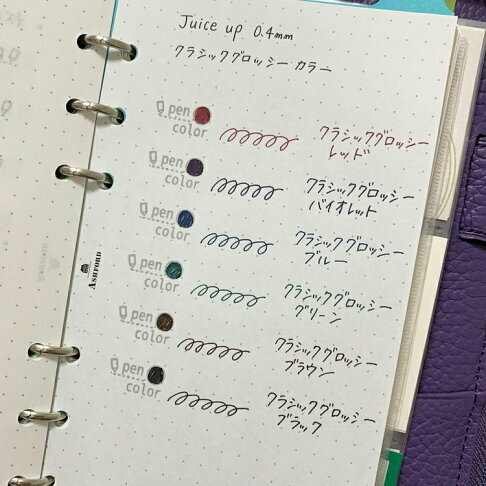 Juice up 0.4mm
クラシックグロッシー カラー
pen
color
クラシックグロッシー
レッド
pen
color
クラシックグロッシー
バイオレット
pen
color
クラシックグロッシー
ブルー
ASHFORD
pen
color
クラシックグロッシー
グリーン
pen
color
クラシックグロッシー
ブラウン
pen
color
クラシックグロッシー
ブラック